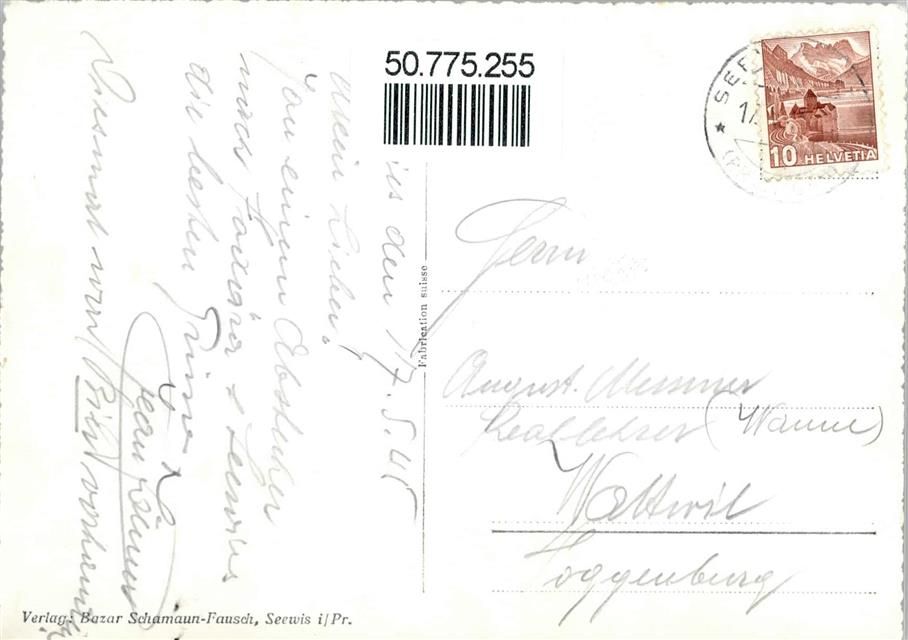 50.775.255
SEE
10 HELVETIA
den 17. 5. 45
Mein Lieber!
Von einem Abstecher
nach Fadära & Seewis
die besten Grüsse
Diesmal vom Bier vorhanden
Fabrication suisse
Herrn
August Messmer
Reallehrer (Wanne)
Wattwil
Toggenburg
Verlag: Bazar Schamaun-Fausch, Seewis i/Pr.